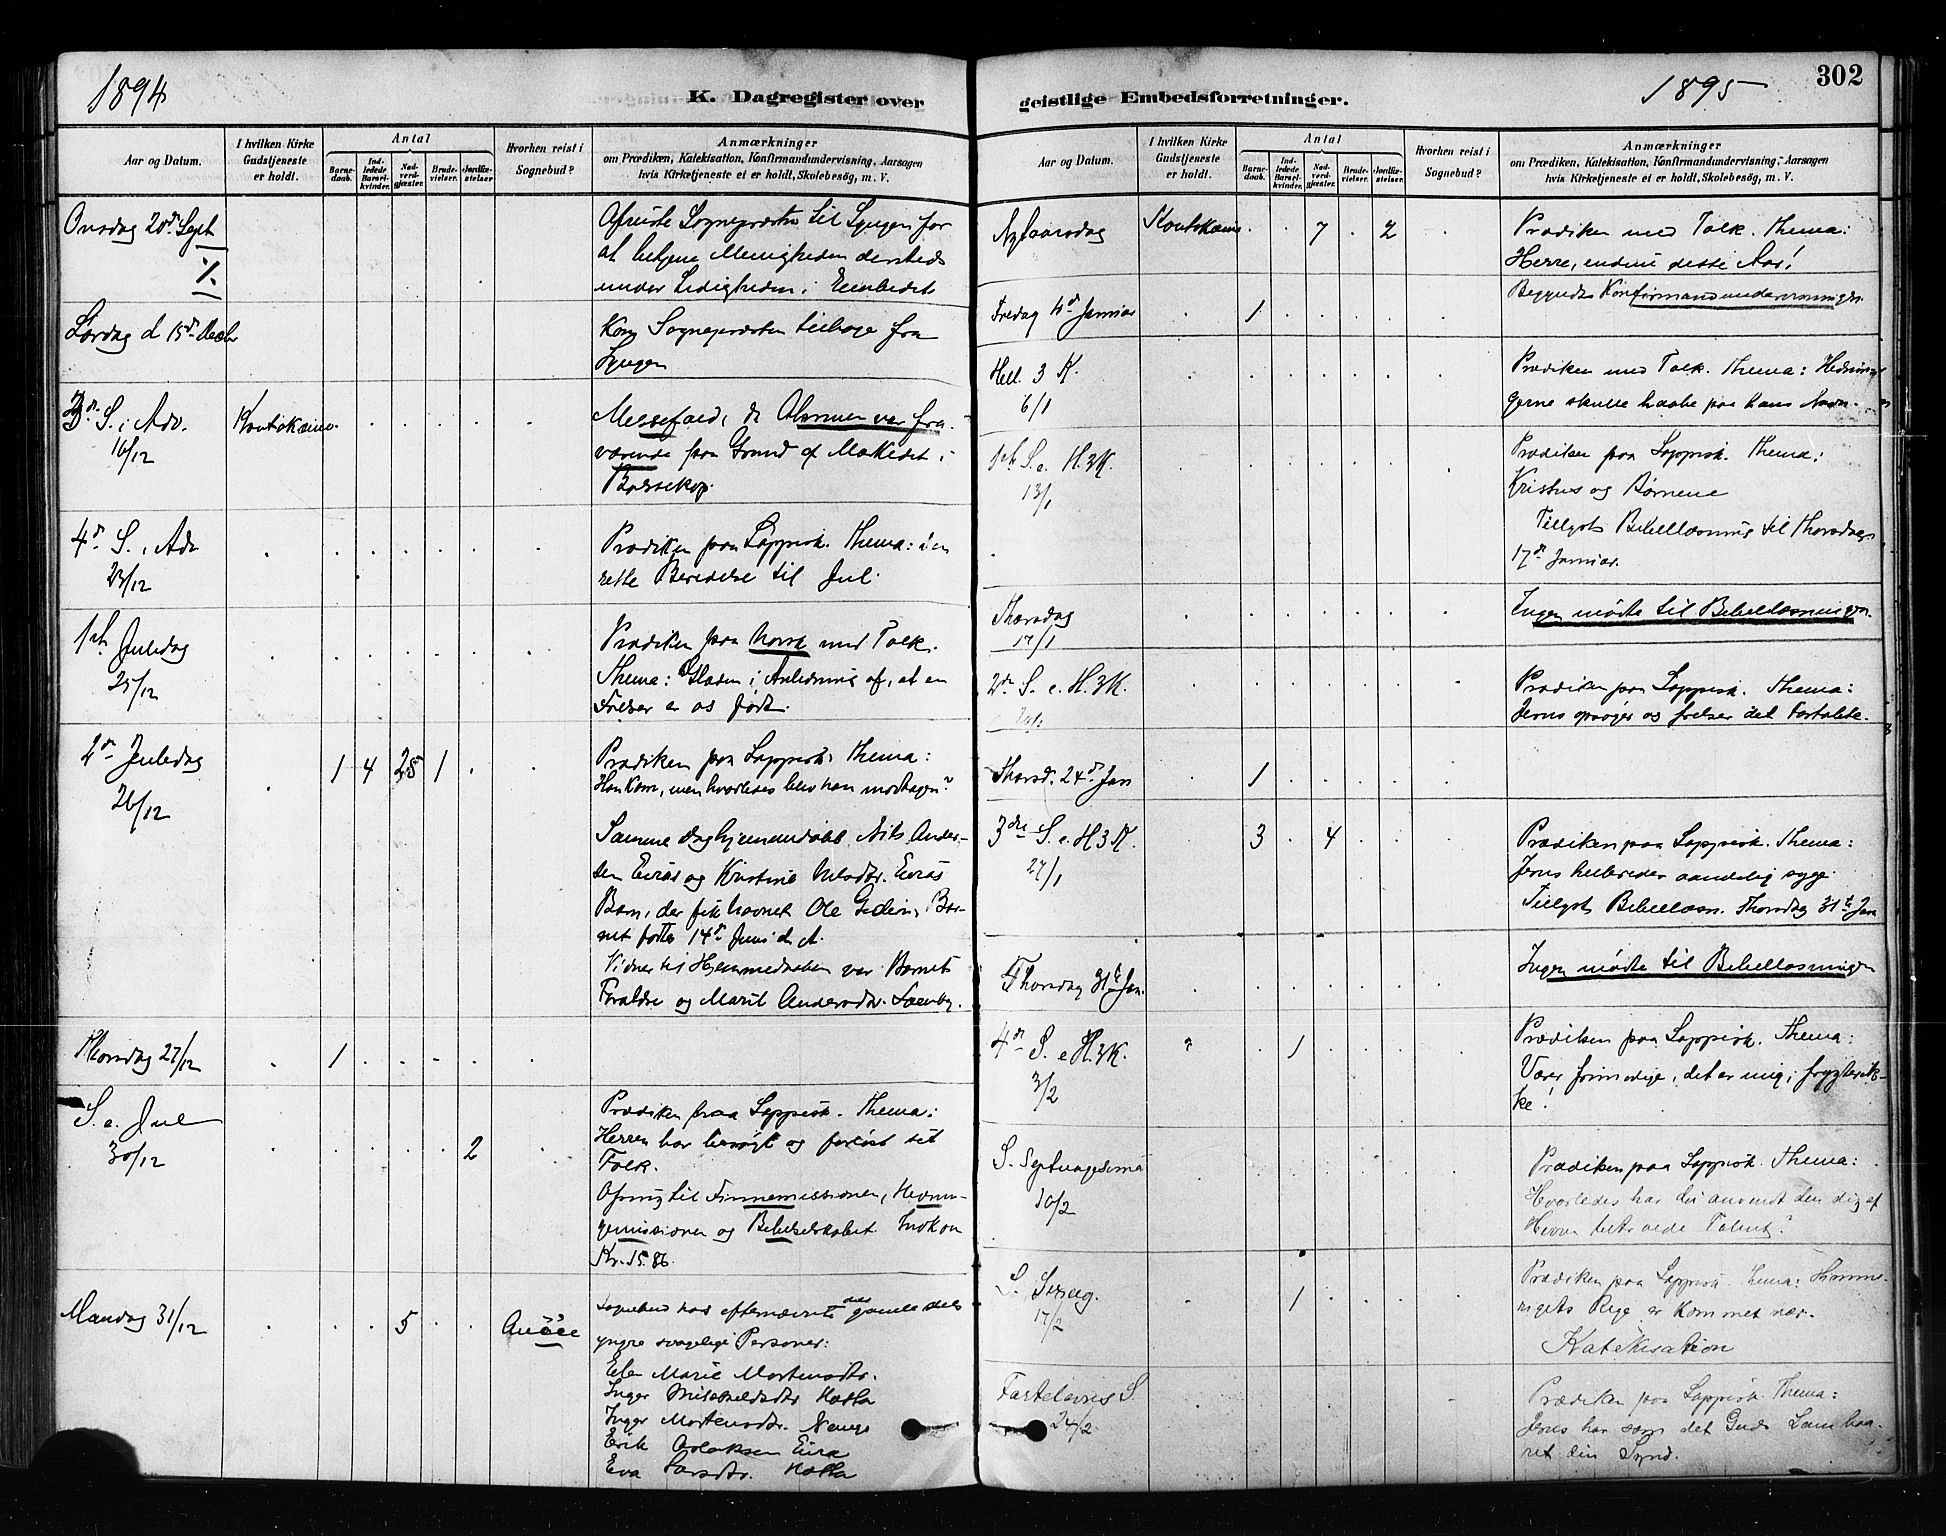 1894
K. Dagregister over
Aar og Datum.
I hvilken Kirke
Gudstjeneste
er holdt.
Antal
Barne-
daab.
Ind-
ledede
Barsel-
kvinder.
Nad-
verd-
gjæster.
Brude-
vielser.
Jordfæ-
stelser
Hvorhen reist i
Sognebud?
Anmærkninger
om Prædiken, Katekisation, Konfirmandundervisning, Aarsagen
hvis Kirketjeneste ei er holdt, Skolebesøg, m. V.
Onsdag 20d. Sept
%
Afreiste Sognepræsten til Lyngen for
at betjene Menigheden dersteds
under Ledigheden i Embedet
Lørdag d 15d. Decbr
Kom Sognepræsten tilbage fra
Lyngen
3d. S. i Adv.
16/12
Koutokæino
Messefald, da Almuen var fra-
værende paa Grund af Markedet i
Bossekop.
4d. S. i Adv
23/12
Prædiken paa Lappisk. Thema: den
rette Beredelse til Jul.
1st Juledag
25/12
Prædiken paa Norsk med Tolk.
Thema: Glæden i Anledning af, at en
Frelser er os født.
2d. Juledag
26/12
1 4 25 1
Prædiken paa Lappisk. Thema:
Han kom, men hvorledes blev han modtagen?
Samme Dag hjemmedøbt Nils Ander-
sen Eiras og Kristine Nilsdtr. Eiras
Barn, der fik Navnet Ole Barn-
et født 14d. Juni d. A.
Vidner til Hjemmedaaben var Barnets
Forældre og Marit Andersdtr.
Thorsdag 27/12
1
S. e. Jul
30/12
2
Prædiken paa Lappisk. Thema:
Herren har besøgt og forløst sit
Folk.
Ofring til Finnemissionen, Hednin-
gemissionen og Bibelselskabet. Indkom
Kr. 15.86.
Mandag 31/12
5
Sognebud hos efternævnte dels gamle dels
yngre svagelige Personer:
Elen Marie Mortensdtr.
Inger Mikkelsdtr Hætta
Inger Mortensdtr.
Erik Aslaksen Eira
Eva Larsdtr. Hætta
geistlige Embedsforretninger.
1895
302
Aar og Datum.
I hvilken Kirke
Gudstjeneste
er holdt.
Antal
Barne-
daab.
Ind-
ledede
Barsel-
kvinder.
Nad-
verd-
gjæster.
Brude-
vielser.
Jordfæ-
stelser.
Hvorhen reist i
Sognebud?
Anmærkninger
om Prædiken, Katekisation, Konfirmandundervisning, Aarsagen
hvis Kirketjeneste ei er holdt, Skolebesøg, m. V.
Nytaarsdag
Koutokæino
7 2
Prædiken med Tolk. Thema:
Herre, endnu dette Aar!
Fredag 4d Januar
1
Begyndte Konfirmandundervisningen.
Hell. 3 K.
6/1
Prædiken med Tolk. Thema: Hednin-
gerne skulle haabe paa hans Navn.
1st S. e. H. 3 K.
13/1
Prædiken paa Lappisk. Thema:
Kristus og Børnene
Tillyst Bibellæsning til Thorsdag
17d Januar.
Thorsdag
17/1
Ingen mødte til Bibellæsningen.
2d. S. e. H. 3 K.
20/1
Prædiken paa Lappisk. Thema:
Jesus opsøger og frelser det Fortabte.
Thorsd. 24d. Jan
1
3die S. e. H 3 K.
27/1
3 4
Prædiken paa Lappisk. Thema:
Jesus helbreder aandelig syge.
Tillyst Bibellæsn. Thorsdag 31te Jan
Thorsdag 31te Jan.
Ingen mødte til Bibellæsningen
4d S. e H. 3 K.
3/2
1
Prædiken paa Lappisk. Thema:
Værer frimodige, det er mig, frygter ik-
ke!
S. Septuagesima
10/2
Prædiken paa Lappisk. Thema:
Hvorledes har du anvendt den dig af
Herren betroede Talent?
S. Sexag.
17/2
1
Prædiken paa Lappisk. Thema: Himme-
rigets Rige er kommet nær.
Katekisation
Fastelavns S
24/2
Prædiken paa Lappisk. Thema:
Jesus har som det Guds Lam baa-
ret din Synd.